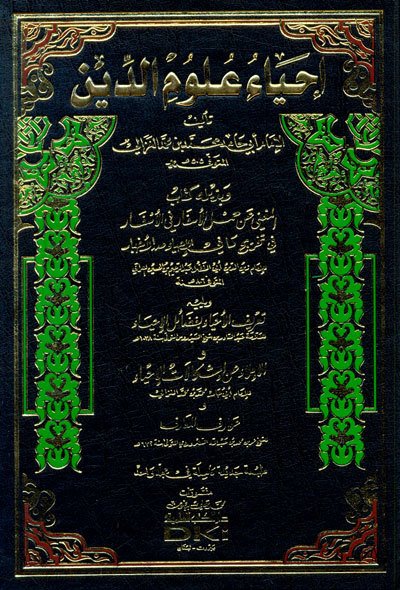 إحياء علوم الدين
تأليف
الإمام أبي حامد محمد بن محمد الغزالي
المتوفى ٥٠٥ هـ
وبذيله كتاب
المغني عن حمل الأسفار في الأسفار
في تخريج ما في الإحياء من الأخبار
ويليه
تعريف الأحياء بفضائل الإحياء
و
الإملاء عن إشكالات الإحياء
و
عوارف المعارف
طبعة جديدة كاملة في مجلد واحد
منشورات
دار الكتب العلمية
DKi
بيروت - لبنان